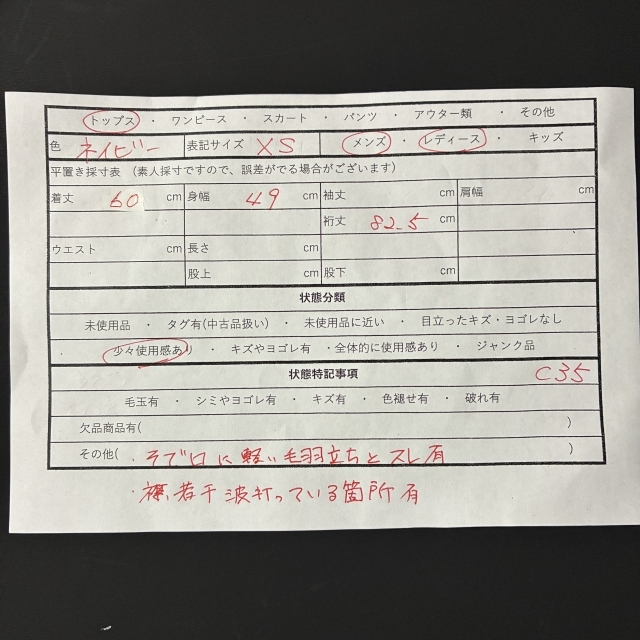 トップス ・ ワンピース ・ スカート ・ パンツ ・ アウター類 ・ その他
色 ネイビー 表記サイズ XS メンズ ・ レディース ・ キッズ
平置き採寸表 (素人採寸ですので、誤差がでる場合がございます)
着丈 60 cm 身幅 49 cm 袖丈 cm 肩幅 cm
裄丈 82.5 cm
ウエスト cm 長さ cm
股上 cm 股下 cm
状態分類
未使用品 ・ タグ有(中古品扱い) ・ 未使用品に近い ・ 目立ったキズ・ヨゴレなし
・ 少々使用感あり ・ キズやヨゴレ有 ・全体的に使用感あり ・ ジャンク品
状態特記事項 C35
毛玉有 ・ シミやヨゴレ有 ・ キズ有 ・ 色褪せ有 ・ 破れ有
欠品商品有( )
その他( ・そで口に軽い毛羽立ちとスレ有 )
・襟、若干波打っている箇所有